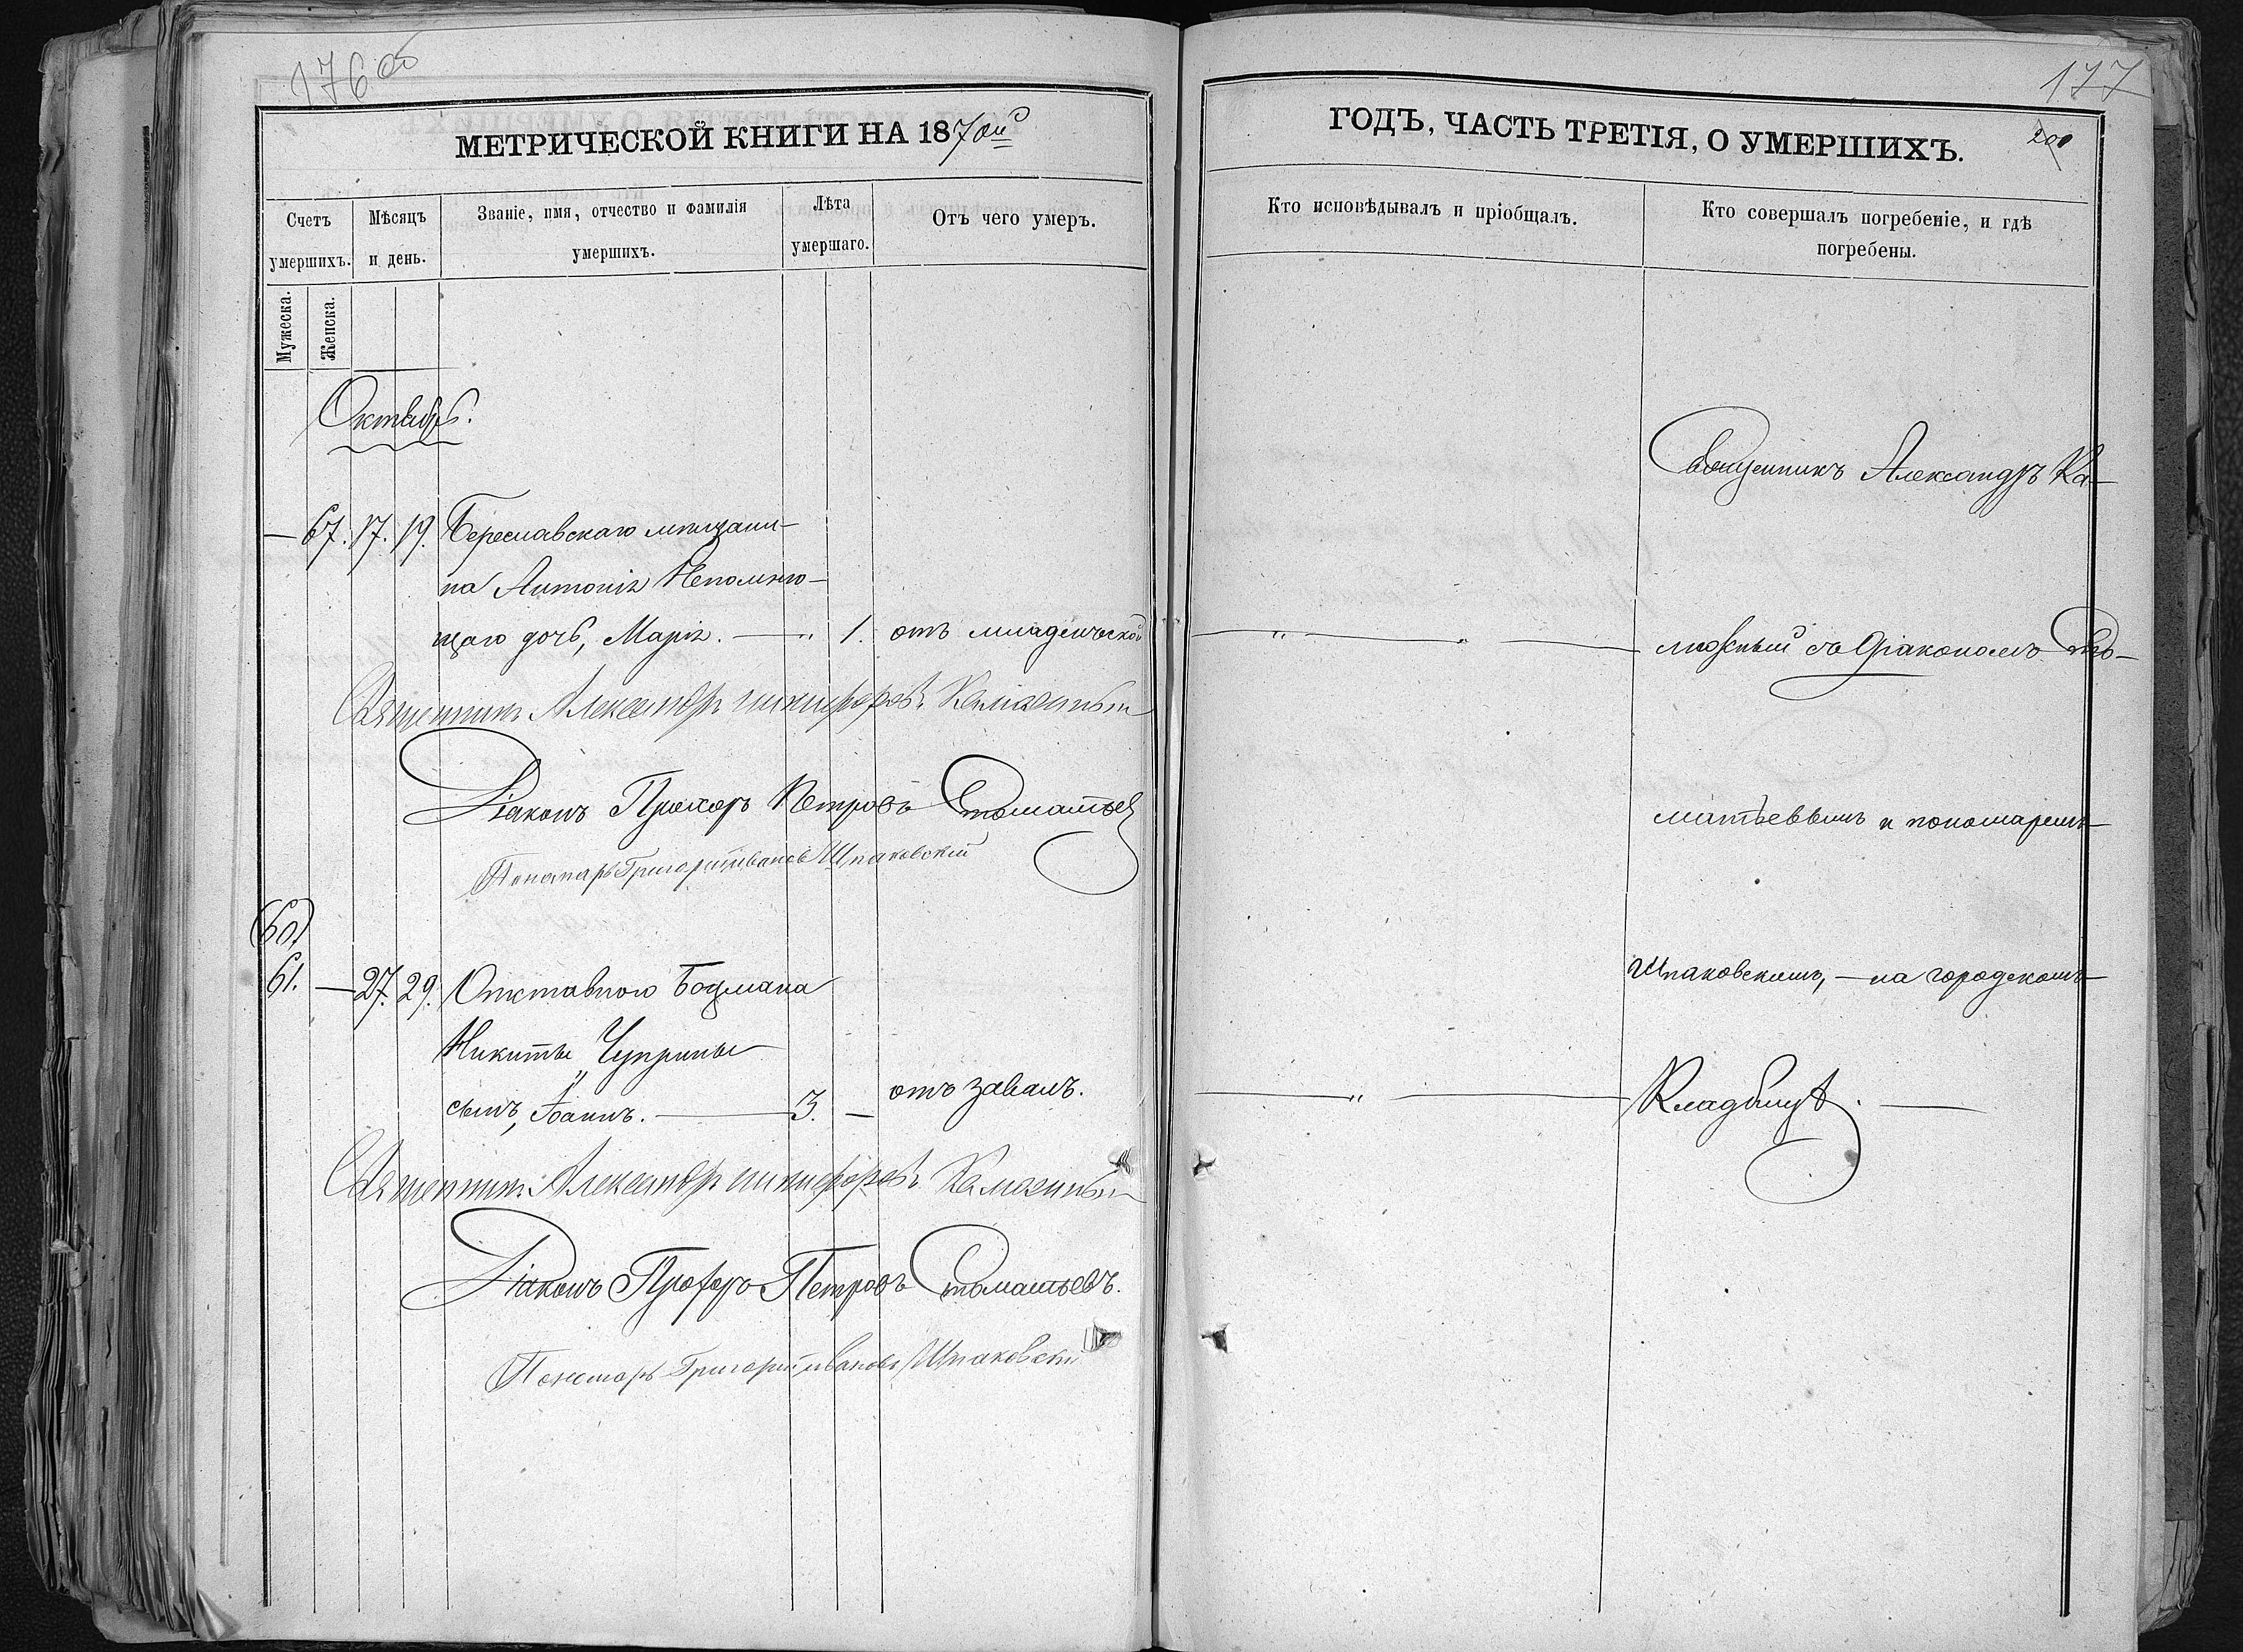 176 об
МЕТРИЧЕСКОЙ КНИГИ НА 1870ый
Счетъ умершихъ.
Мѣсяцъ и день.
Званіе, имя, отчество и фамилія умершихъ.
Лѣта умершаго.
Отъ чего умеръ.
Мужеска.
Женска.
Октябрь.
— 67. 17. 19. Береславскаго мѣщани-
на Антонія Непомню-
щаго дочь, Марія. — " 1. отъ младенческой
Священникъ Александръ Никифоровъ Каминскій
Діаконъ Прохоръ Петровъ Стоматьевъ
Пономарь Григорій Ивановъ Шпаковскій
(60)
61. — 27. 29. Отставного Боцмана
Никиты Чуприны
сынъ, Іоаннъ. — 3. — отъ завалъ.
Священникъ Александръ Никифоровъ
Діаконъ Прохоръ Петровъ Стоматьевъ.
Пономарь Григорій Ивановъ Шпаковскій
177
ГОДЪ, ЧАСТЬ ТРЕТІЯ, О УМЕРШИХЪ.
200
Кто исповѣдывалъ и пріобщалъ.
Кто совершалъ погребеніе, и гдѣ погребены.
Священникъ Александръ Ка-
— " — " — съ Діакономъ Сто-
матьевымъ и пономаремъ
Шпаковскимъ, — на городскомъ
— " — Кладбищѣ. —